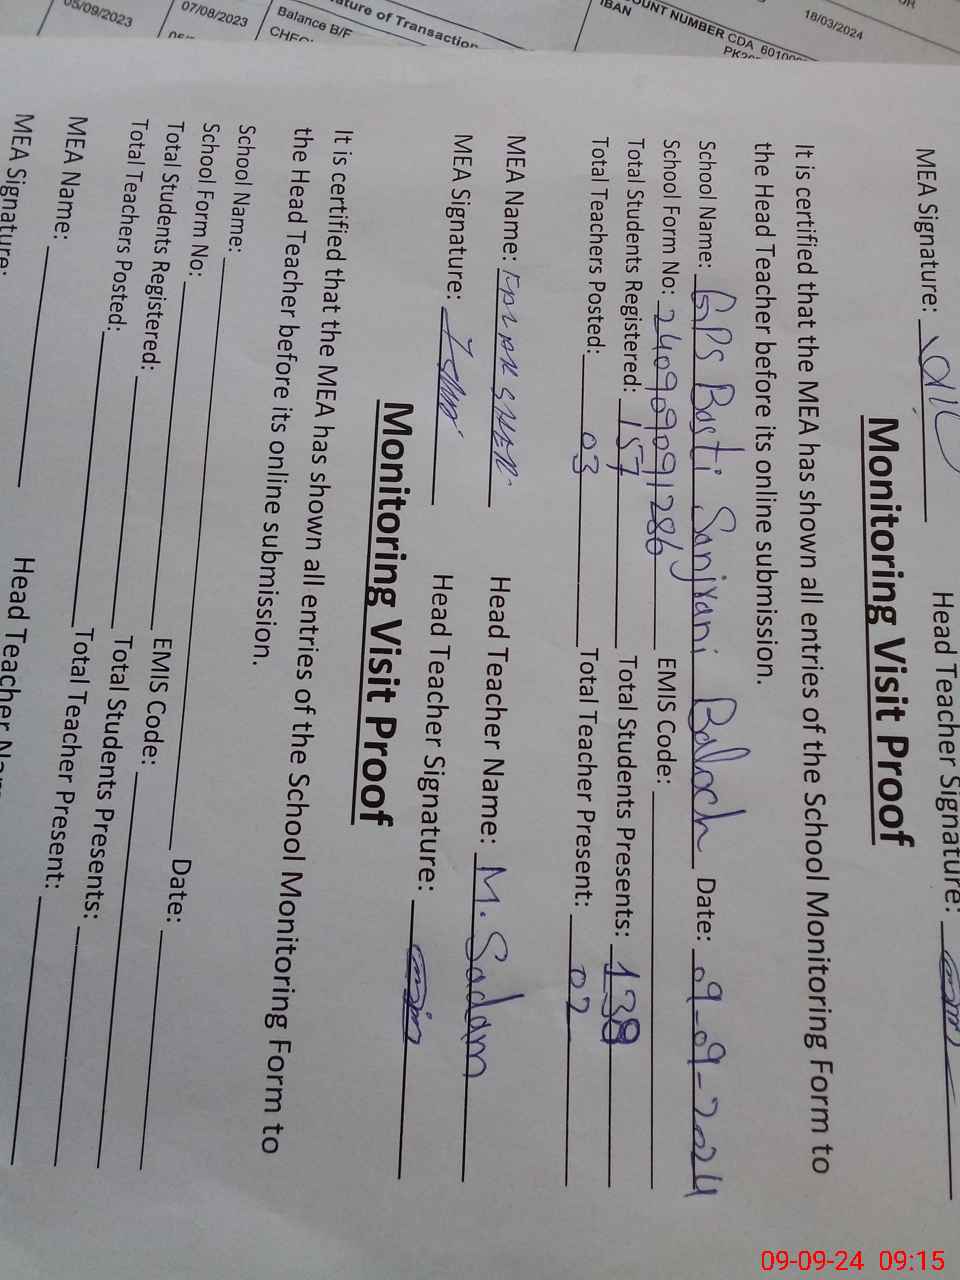 05/09/2023
07/08/2023
Balance B/F
ature of Transaction
IBAN
OUNT NUMBER CDA
18/03/2024
MEA Signature: Head Teacher Signature:
Monitoring Visit Proof
It is certified that the MEA has shown all entries of the School Monitoring Form to
the Head Teacher before its online submission.
School Name: GPS Basti Sanjrani Baloch Date: 09-09-2024
School Form No: 24090909091286 EMIS Code:
Total Students Registered: 157 Total Students Presents: 138
Total Teachers Posted: 03 Total Teacher Present: 02
MEA Name: Head Teacher Name: M. Saddam
MEA Signature: Head Teacher Signature:
Monitoring Visit Proof
It is certified that the MEA has shown all entries of the School Monitoring Form to
the Head Teacher before its online submission.
School Name: Date:
School Form No: EMIS Code:
Total Students Registered: Total Students Presents:
Total Teachers Posted: Total Teacher Present:
MEA Name: Head Teacher
MEA Signature:
09-09-24 09:15